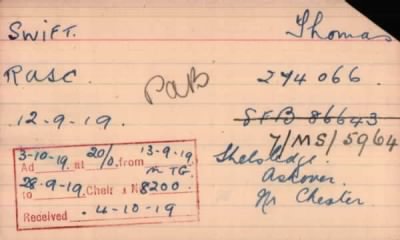 SWIFT. Thomas
RASC. 274066.
PaB
12-9-19. SFB 86643
7/MS/5964
3-10-19. 20/0. 13-9-19.
Ad at from MTG.
28-9-19. Chelr : N 8200
to
Received . 4-10-19
Ashover.
Nr Chester.